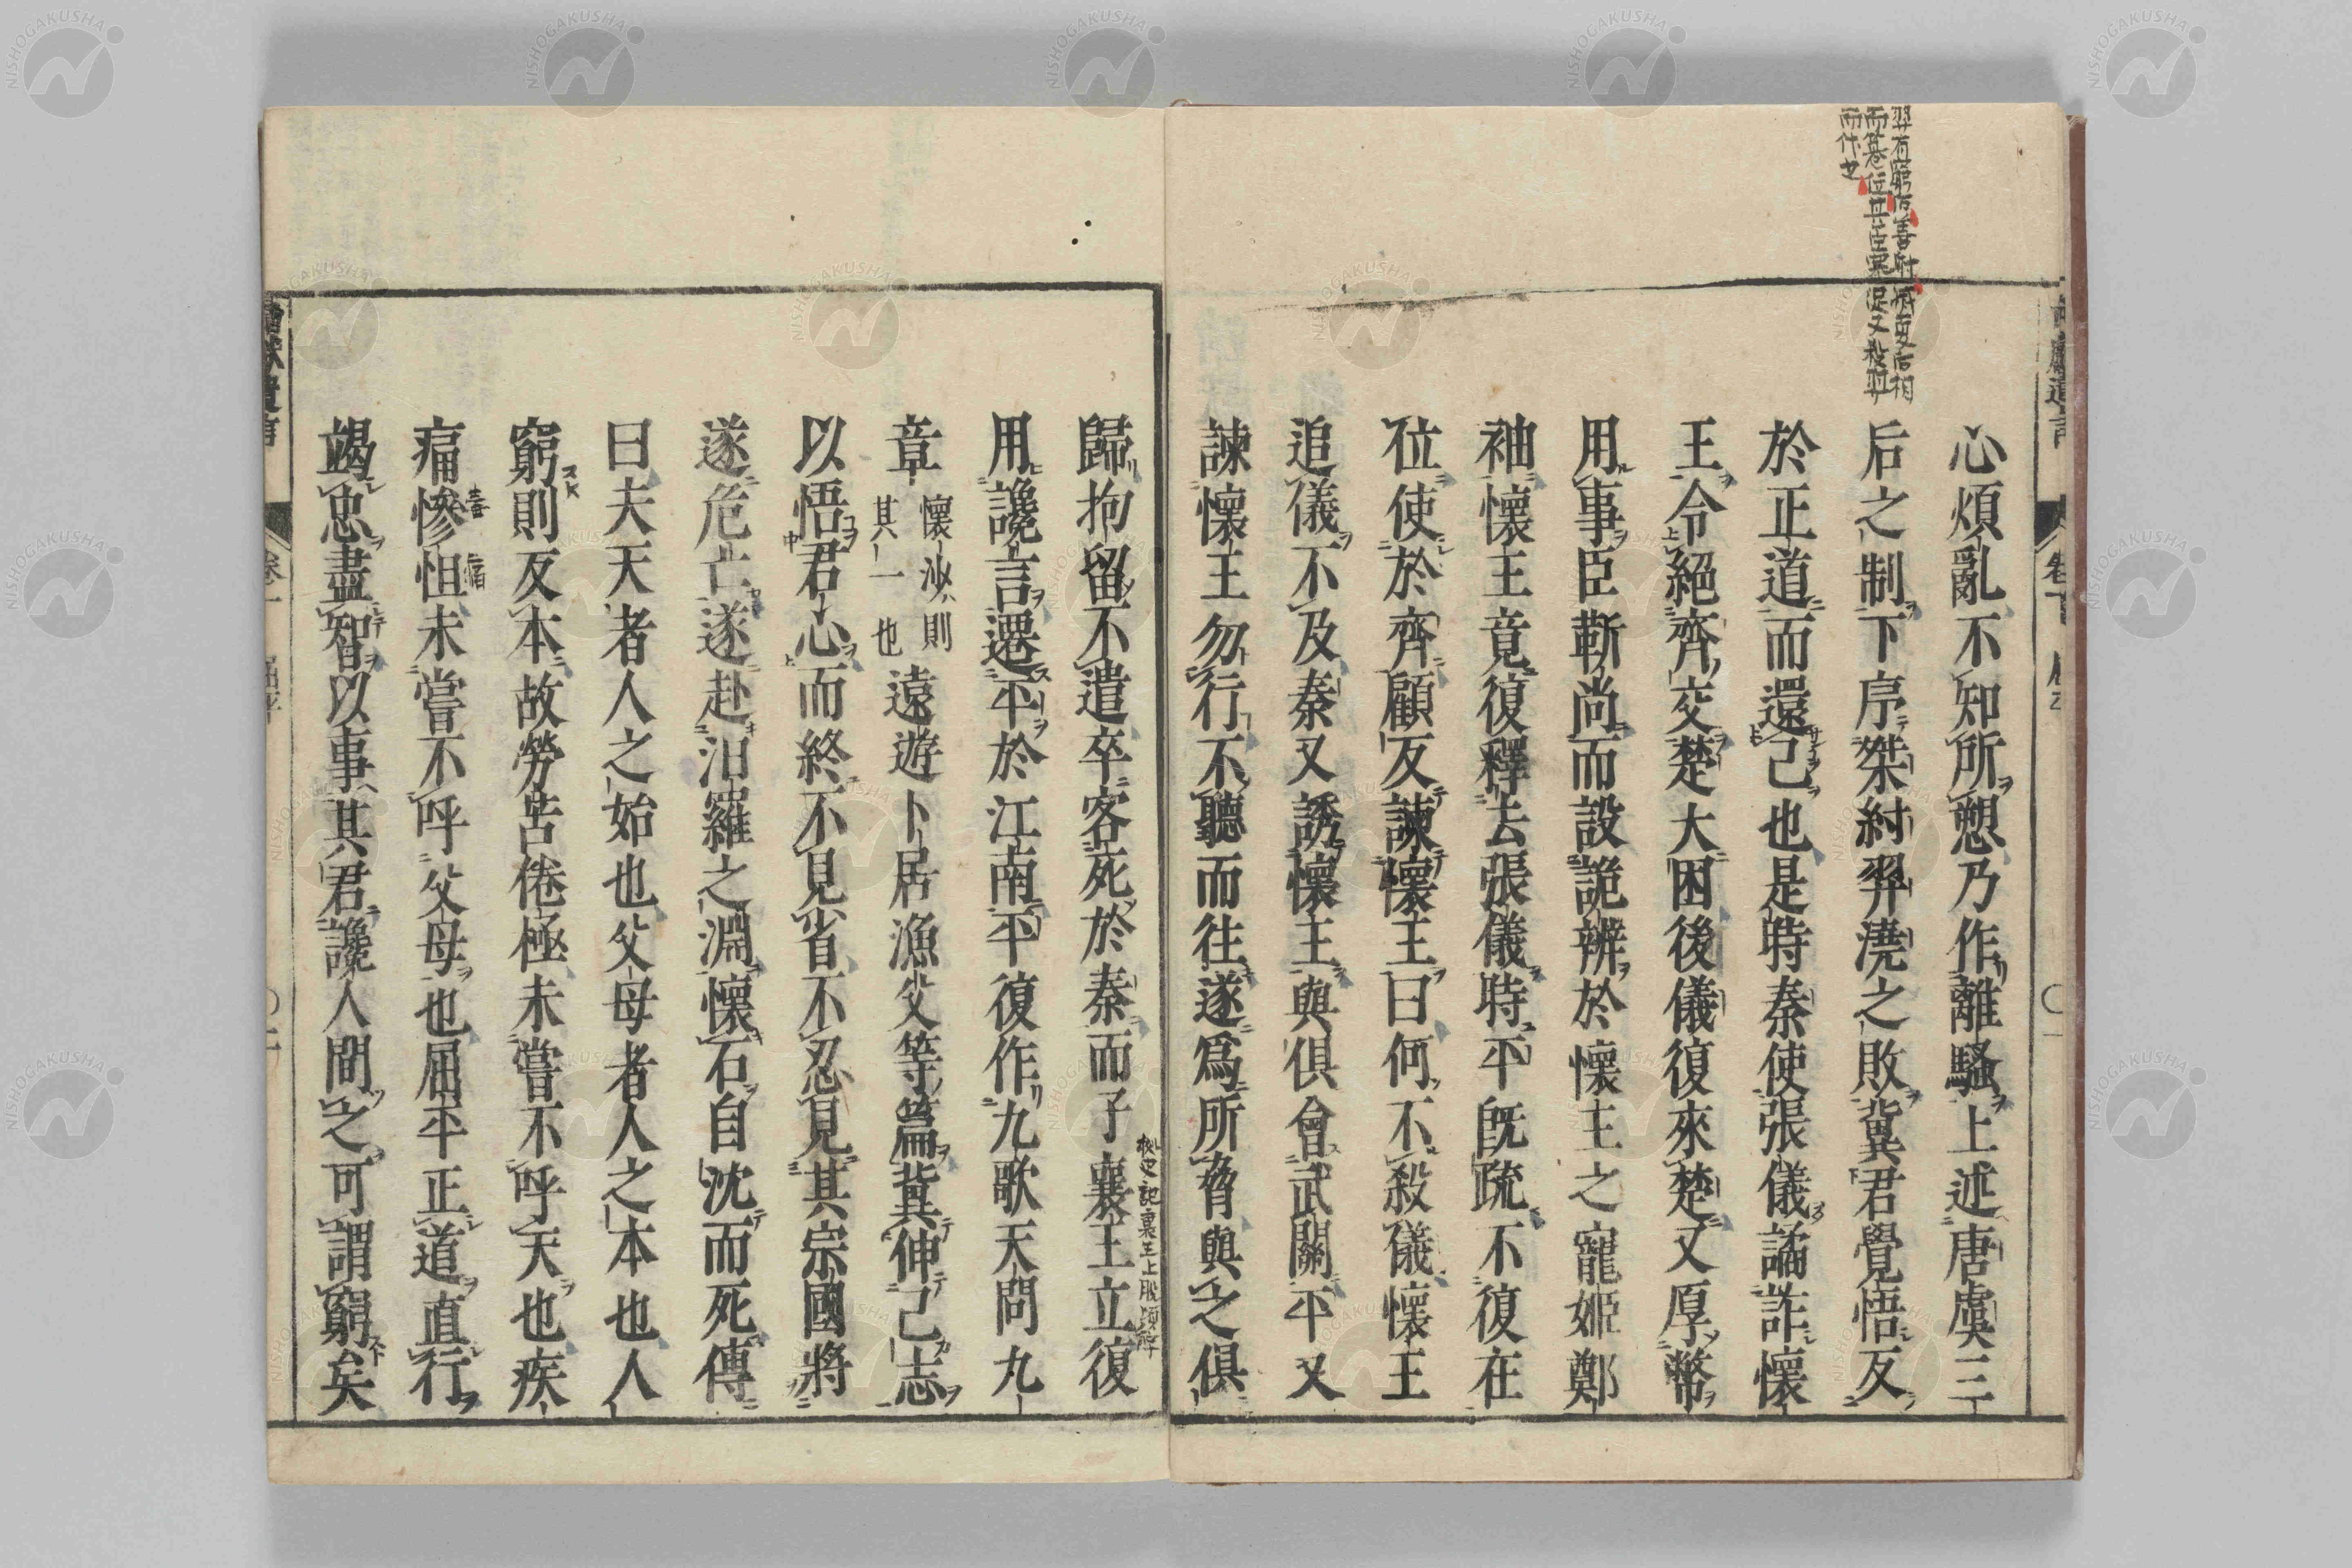 心煩亂不知所愬乃作離騷上述唐虞三
后之制下序桀紂羿澆之敗冀君覺悟反
於正道而還己也是時秦使張儀譎詐懷
王令絕齊交楚大困後儀復來楚又厚幣
用事臣靳尚而設詭辨於懷王之寵姬鄭
袖懷王竟復釋去張儀時平既疏不復在
位使於齊顧反諫懷王曰何不殺儀懷王
追儀不及秦又誘懷王與俱會武關平又
諫懷王勿行不聽而往遂爲所脅與之俱
歸拘留不遣卒客死於秦而子襄王立復
用讒言遷平於江南平復作九歌天問九
章懷沙則其一也遠遊卜居漁父等篇冀伸己志
以悟君心而終不見省不忍見其宗國將
遂危亡遂赴汨羅之淵懷石自沈而死傳
曰夫天者人之始也父母者人之本也人
窮則反本故勞苦倦極未嘗不呼天也疾
痛慘怛未嘗不呼父母也屈平正道直行
竭忠盡智以事其君讒人間之可謂窮矣